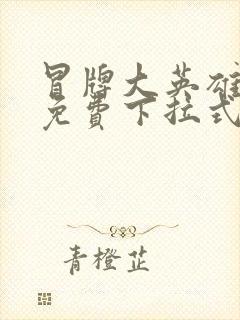 冒牌大英雄
免費下拉式
青橙芷